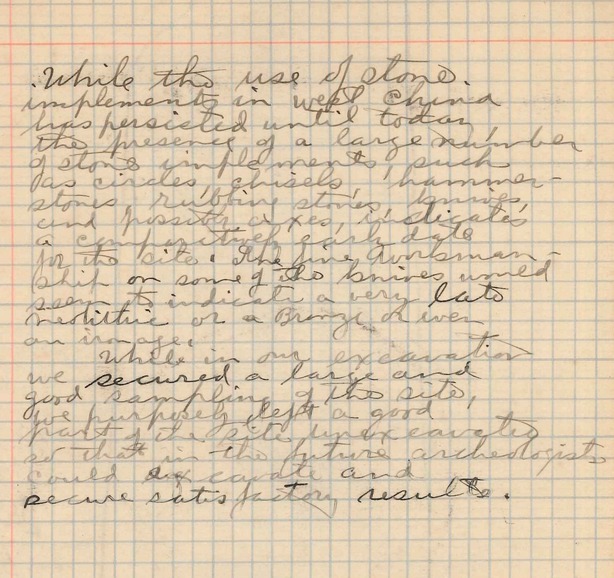 While the use of stone
implements in west China
has persisted until today,
the presence of a large number
of stone implements such
as circles, chisels, hammer-
stones, rubbing stones, knives,
and possibly axes, indicates
a comparatively early date
for the site. The fine workman-
ship on some of the knives would
seem to indicate a very late
neolithic or a Bronze or even
an iron age.
While in our excavation
we secured a large and
good sampling of the site,
we purposely left a good
part of the site unexcavated
so that in the future archeologists
could excavate and
secure satisfactory results.